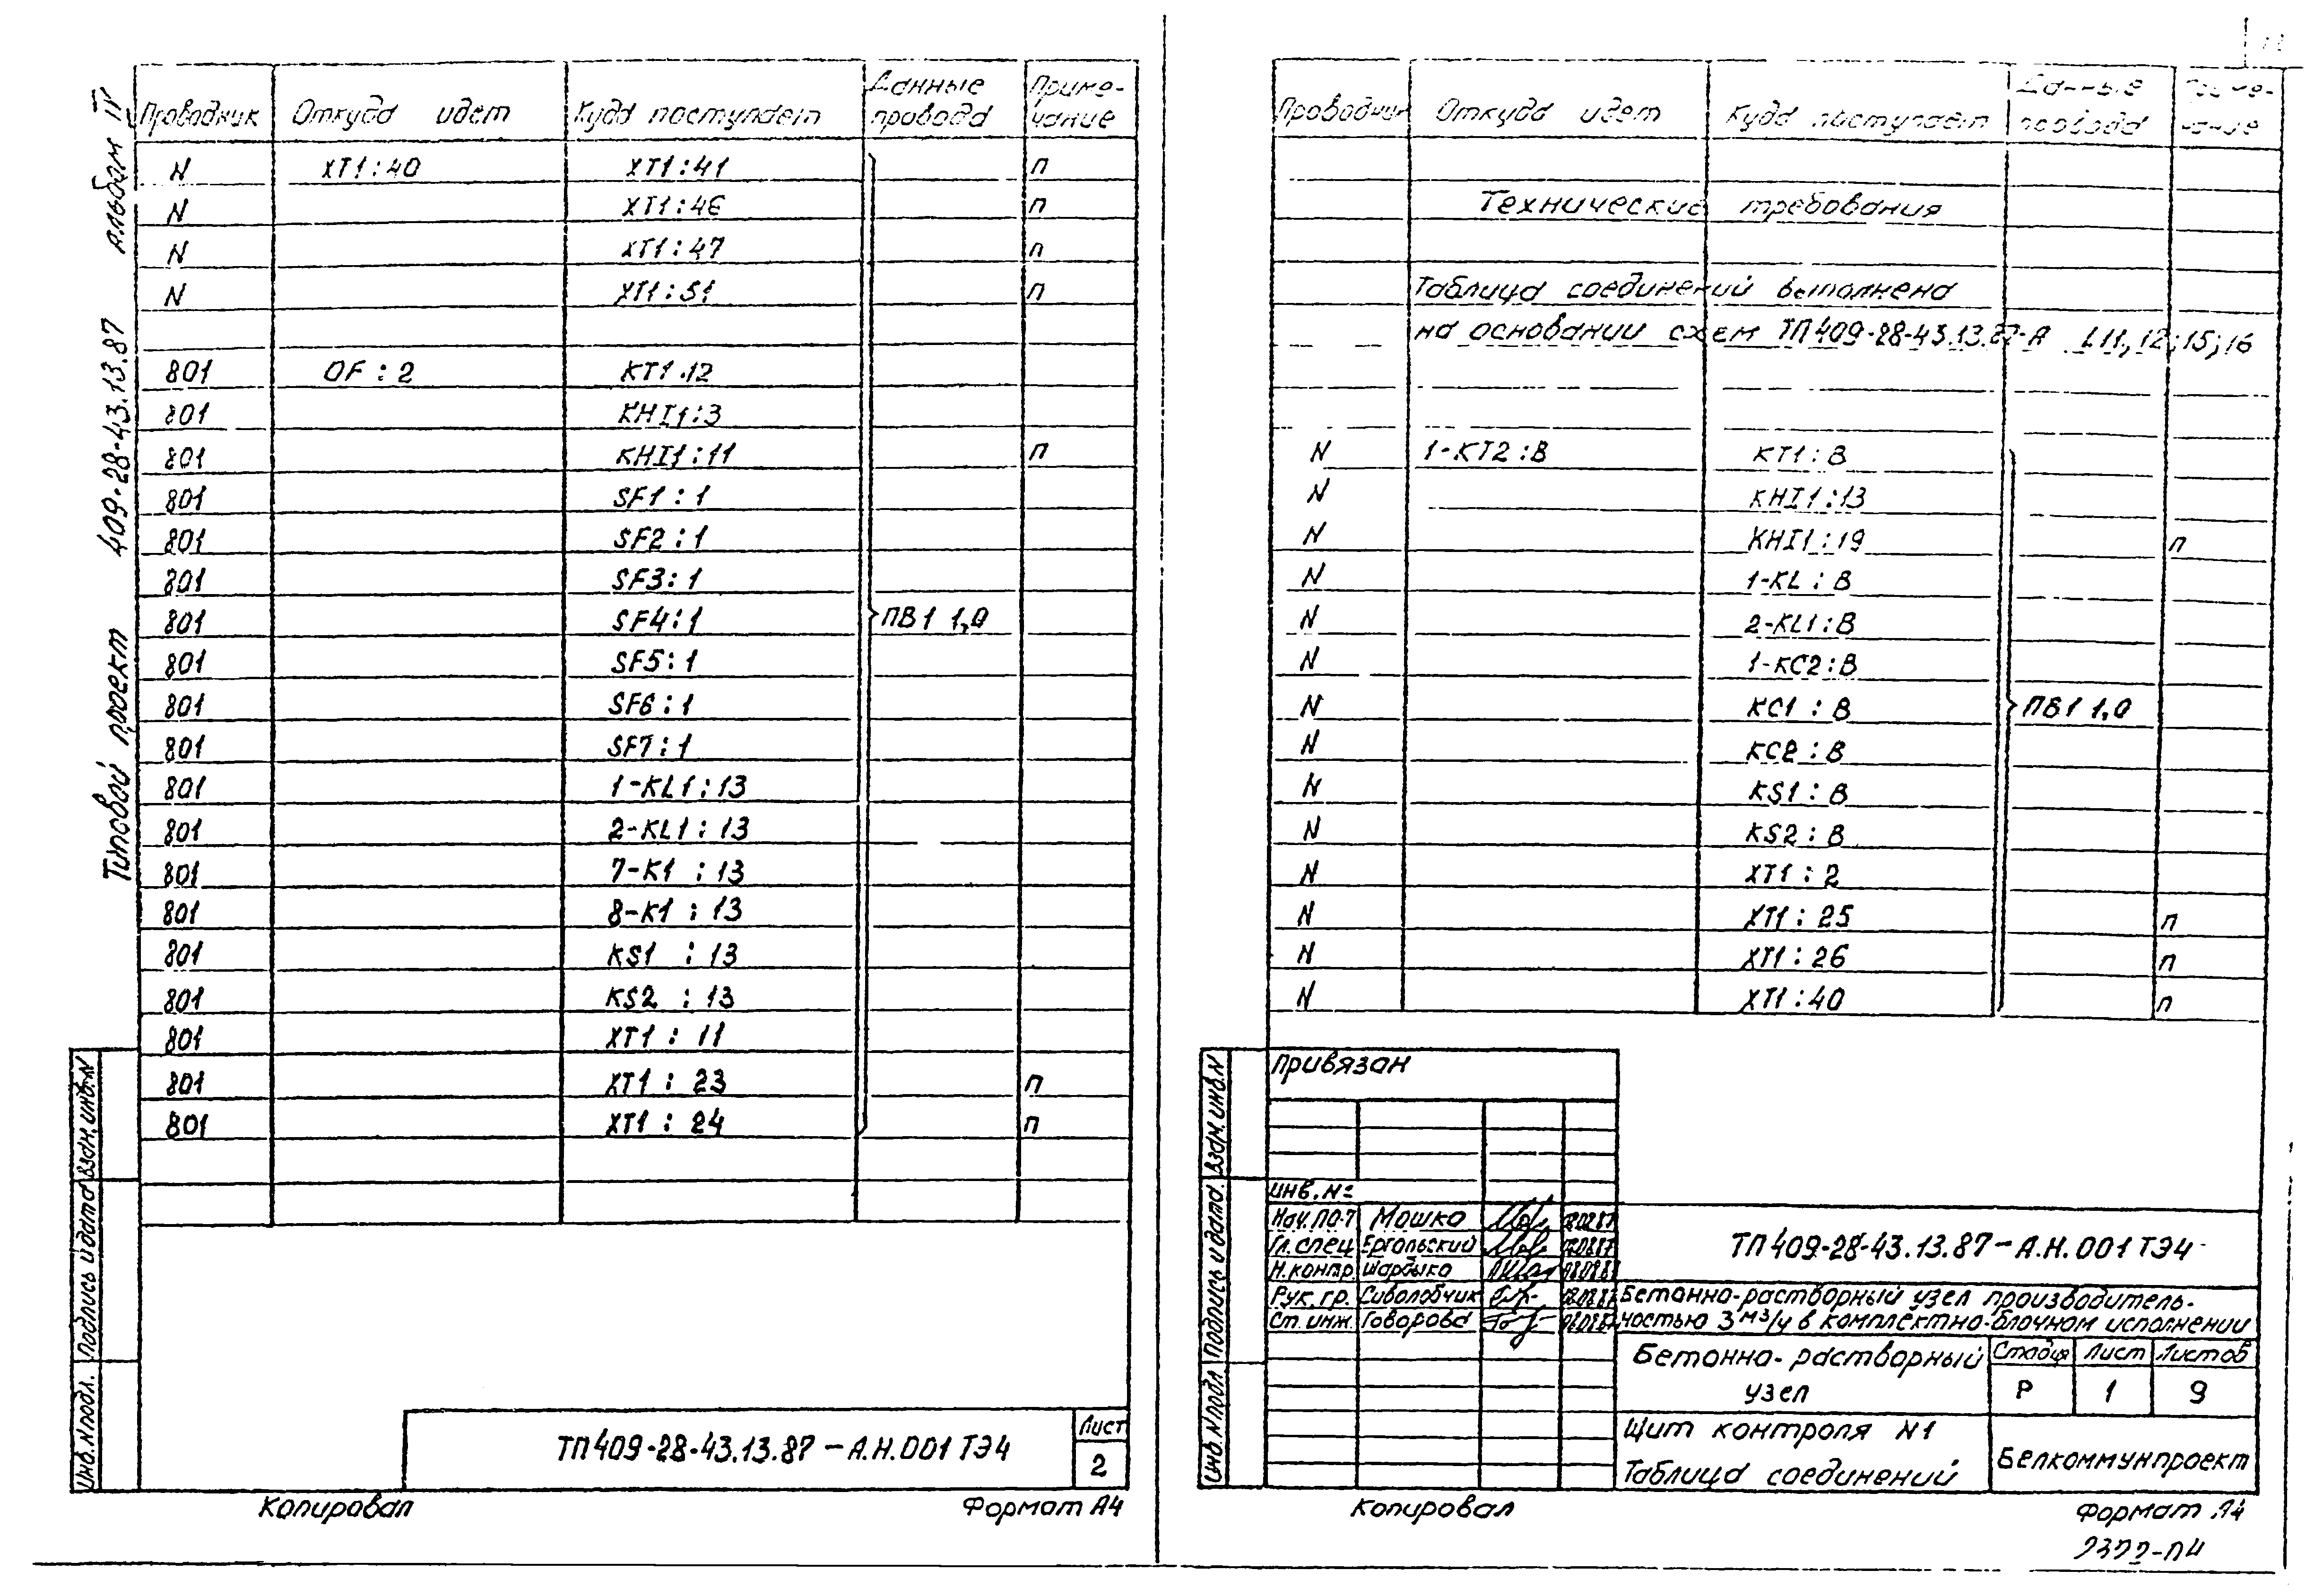 Типовой проект 409-28-43.13.87 Альбом IV
Проводник Откуда идет Куда поступает Данные провода Приме-чание
N XT1:40 XT1:41 п
N XT1:46 п
N XT1:47 п
N XT1:51 п
801 QF:2 KT1.12
801 KHI1:3
801 KHI1:11 п
801 SF1:1
801 SF2:1
801 SF3:1
801 SF4:1 ПВ1 1,0
801 SF5:1
801 SF6:1
801 SF7:1
801 1-KL1:13
801 2-KL1:13
801 7-K1:13
801 8-K1:13
801 KS1:13
801 KS2:13
801 XT1:11
801 XT1:23 п
801 XT1:24 п
Инв.N подл. Подпись и дата Взам.инв.N
ТП409-28-43.13.87-А.Н.001 ТЭ4
Лист
2
Копировал
Формат А4
Проводник Откуда идет Куда поступает Данные провода Приме-чание
Технические требования
Таблица соединений выполнена
на основании схем ТП409-28-43.13.87-А 12;15;16
N 1-KT2:B KT1:B
N KHI1:13
N KHI1:19 п
N 1-KL:B
N 2-KL1:B
N 1-KC2:B
N KC1:B ПВ1 1,0
N KC2:B
N KS1:B
N KS2:B
N XT1:2
N XT1:25 п
N XT1:26 п
N XT1:40 п
Инв.N подл Подпись и дата. Взам.инв.N
Привязан
инв.N:
Нач.ПО-7 Мошко
Гл.спец Ергольский
Н.контр. Шардыко
Рук.гр. Сиволобчик
Ст.инж. Говорова
ТП409-28-43.13.87-А.Н.001 ТЭ4
Бетонно-растворный узел производитель-
ностью 3м³/ч в комплектно-блочном исполнении
Бетонно-растворный
узел
Стадия Лист Листов
Р 1 9
Щит контроля N1
Таблица соединений
Белкоммунпроект
Копировал
Формат А4